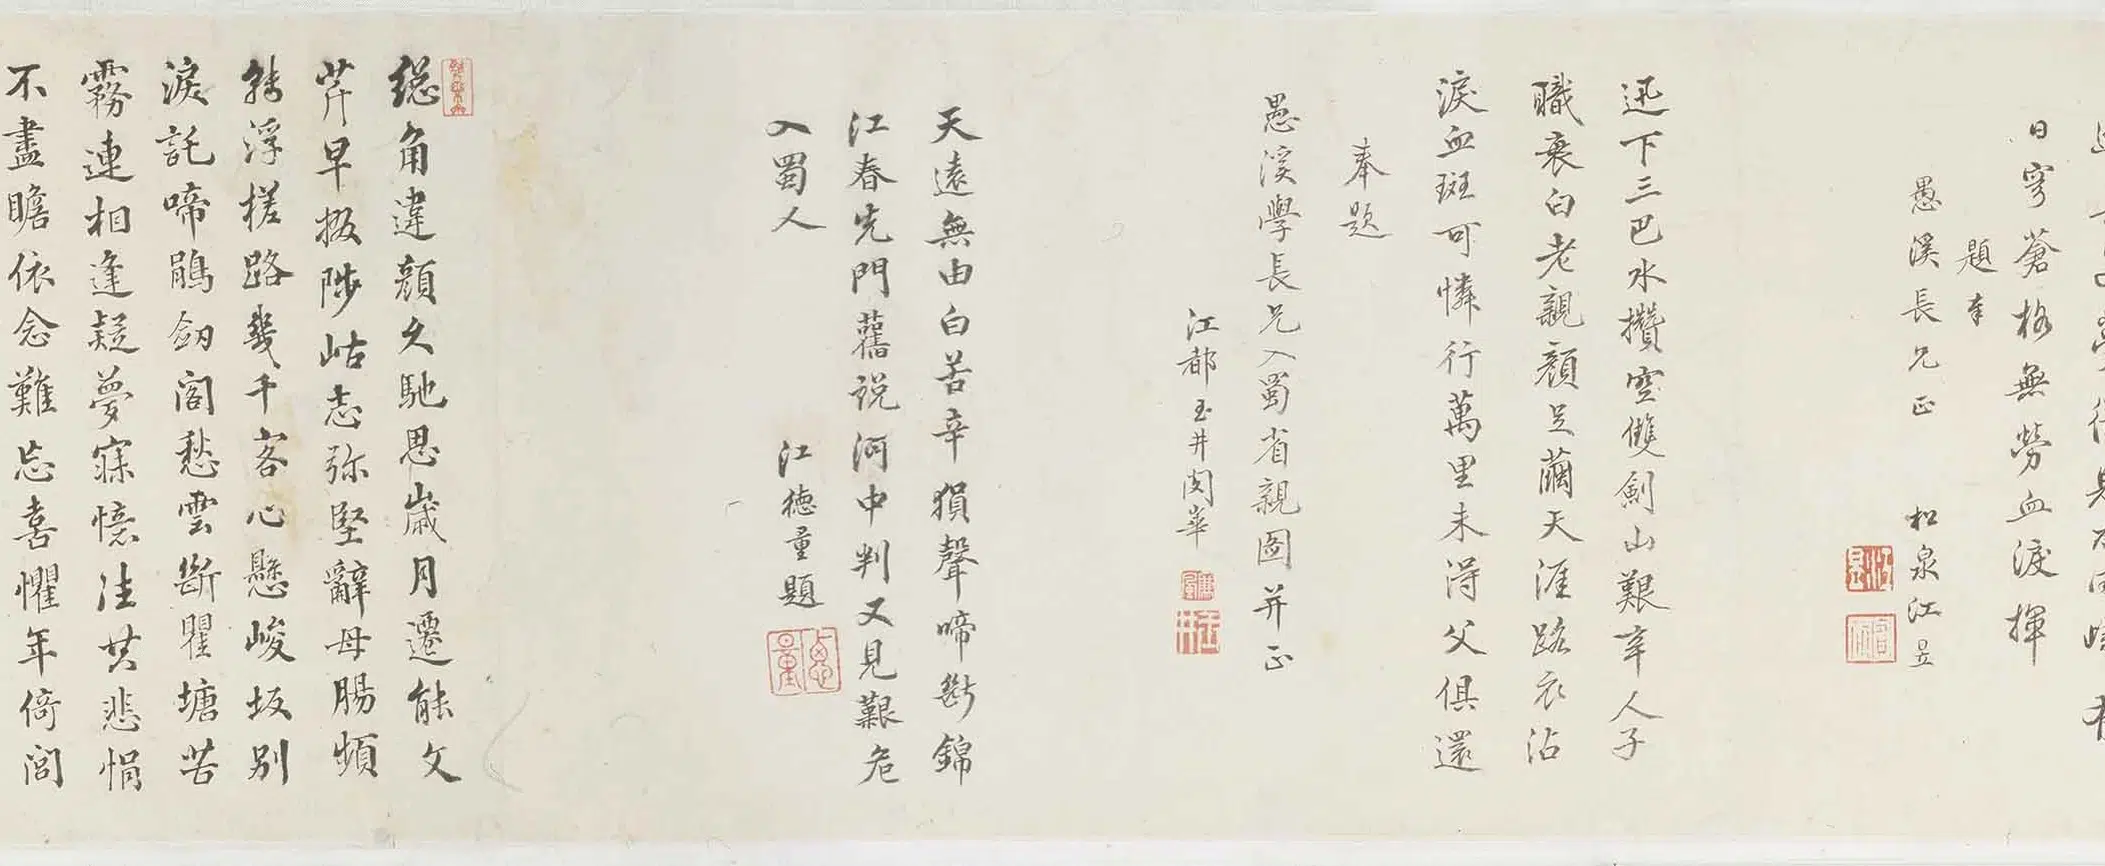 日穹蒼格無勞血淚揮
題奉
愚溪長兄正
松泉江昱
迅下三巴水攢空雙劍山艱辛人子
職衰白老親顏足繭天涯路衣沾
淚血斑可憐行萬里未得父俱還
奉題
愚溪學長兄入蜀省親圖并正
江都玉井閔華
天遠無由白苦辛猿聲啼斷錦
江春先門舊說河中判又見艱危
入蜀人
江德量題
德量
緫角違顏久馳思歲月遷能文
芹早掇陟岵志弥堅辭母腸頻
轉浮槎路幾千客心懸峻坂別
淚託啼鵑劒閣愁雲斷瞿塘苦
霧連相逢疑夢寐憶往共悲悁
不盡瞻依念難忘喜懼年倚閭